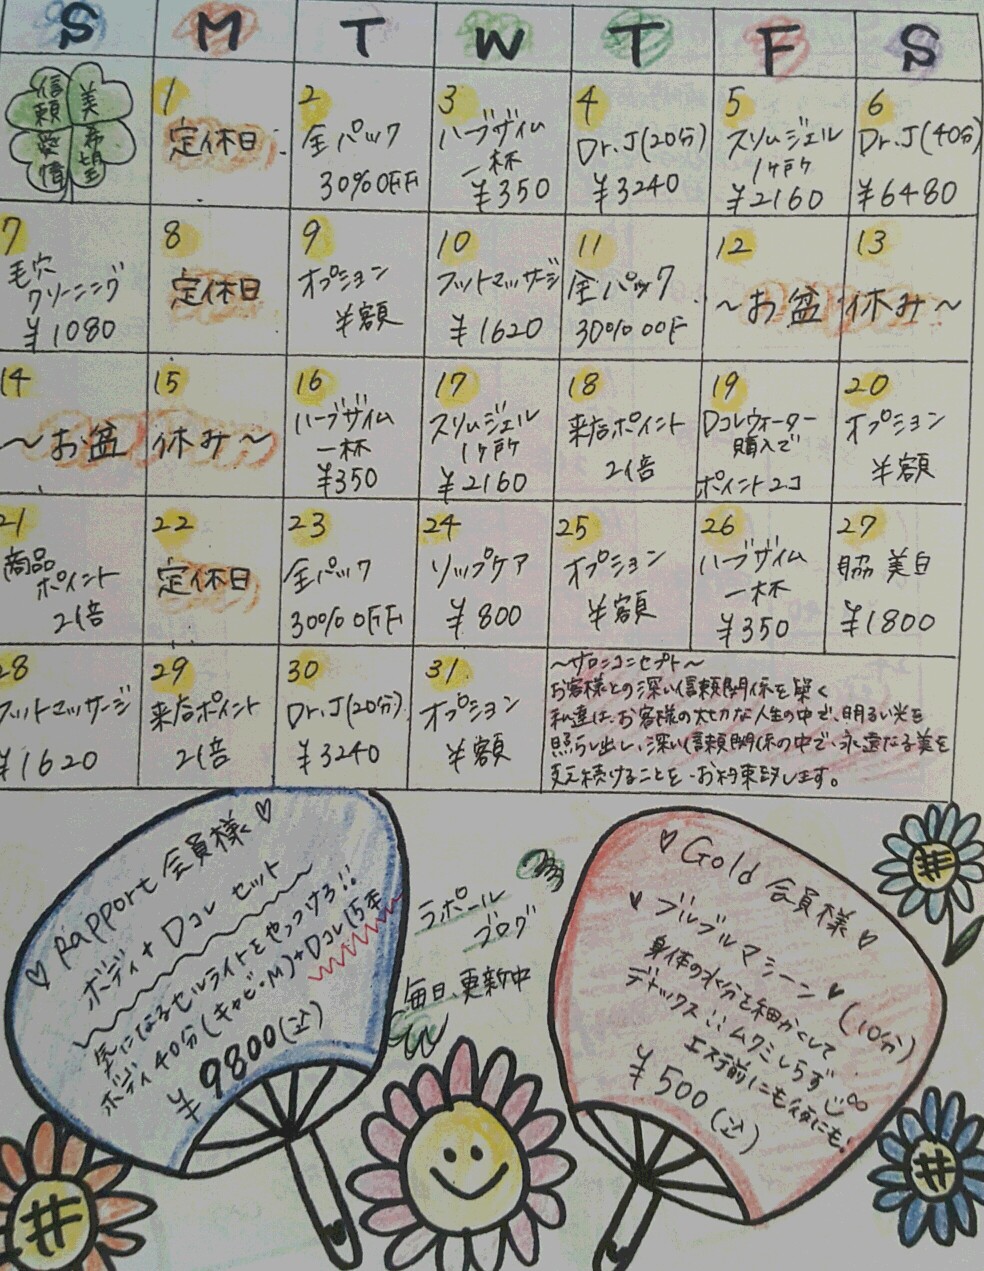 S M T W T F S
信頼 美
愛情 希望
1
定休日
2
金パック
30%OFF
3
ハーブザイム
一杯
¥350
4
Dr.J(20分)
¥3240
5
スリムジェル
1ヶ所
¥2160
6
Dr.J(40分)
¥6480
7
毛穴
クリーニング
¥1080
8
定休日
9
オプション
半額
10
フットマッサージ
¥1620
11
金パック
30%OOF
12 13
～お盆休み～
14 15
～お盆休み～
16
ハーブザイム
一杯
¥350
17
スリムジェル
1ヶ所
¥2160
18
来店ポイント
2倍
19
Dコレウォーター
購入で
ポイント2コ
20
オプション
半額
21
商品
ポイント
2倍
22
定休日
23
金パック
30%OFF
24
リップケア
¥800
25
オプション
半額
26
ハーブザイム
一杯
¥350
27
脇美白
¥1800
28
フットマッサージ
¥1620
29
来店ポイント
2倍
30
Dr.J(20分)
¥3240
31
オプション
半額
～サロンコンセプト～
お客様との深い信頼関係を築く
私達は、お客様の大切な人生の中で、明るい光を
照らし出し、深い信頼関係の中で、永遠なる美を
支え続けることを、お約束致します。
♡ Rapport 会員様 ♡
ボディ+Dコレ セット
気になるセルライトをやっつけろ!!
ボディ40分(キャビ・M)+Dコレ15本
¥9800(込)
ラポール
ブログ
毎日、更新中
♡ Gold 会員様 ♡
♥ ブルブルマシーン ♥ (10分)
身体の水分を細かくして
デトックス!!ムクミしらず
エステ前にも後にも!
¥500(込)